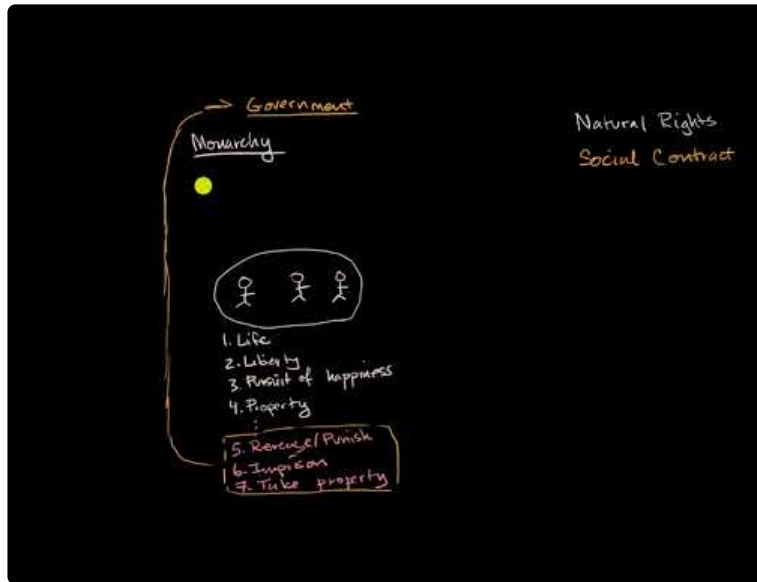 Government
Natural Rights
Monarchy
Social Contract
1. Life
2. Liberty
3. Pursuit of happiness
4. Property
5. Revenge/Punish
6. Imprison
7. Take property